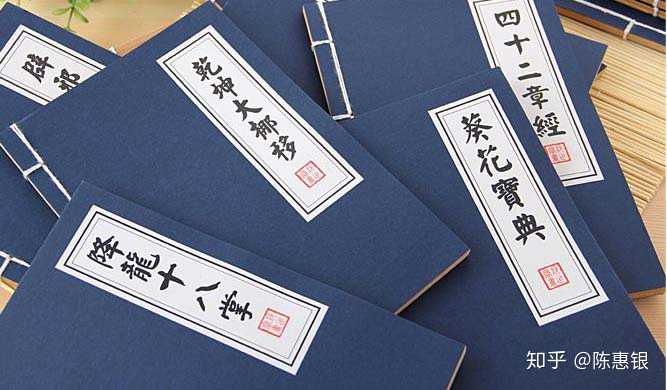 辟邪
乾坤大挪移
四十二章經
葵花寶典
降龍十八掌
知乎 @陈惠银